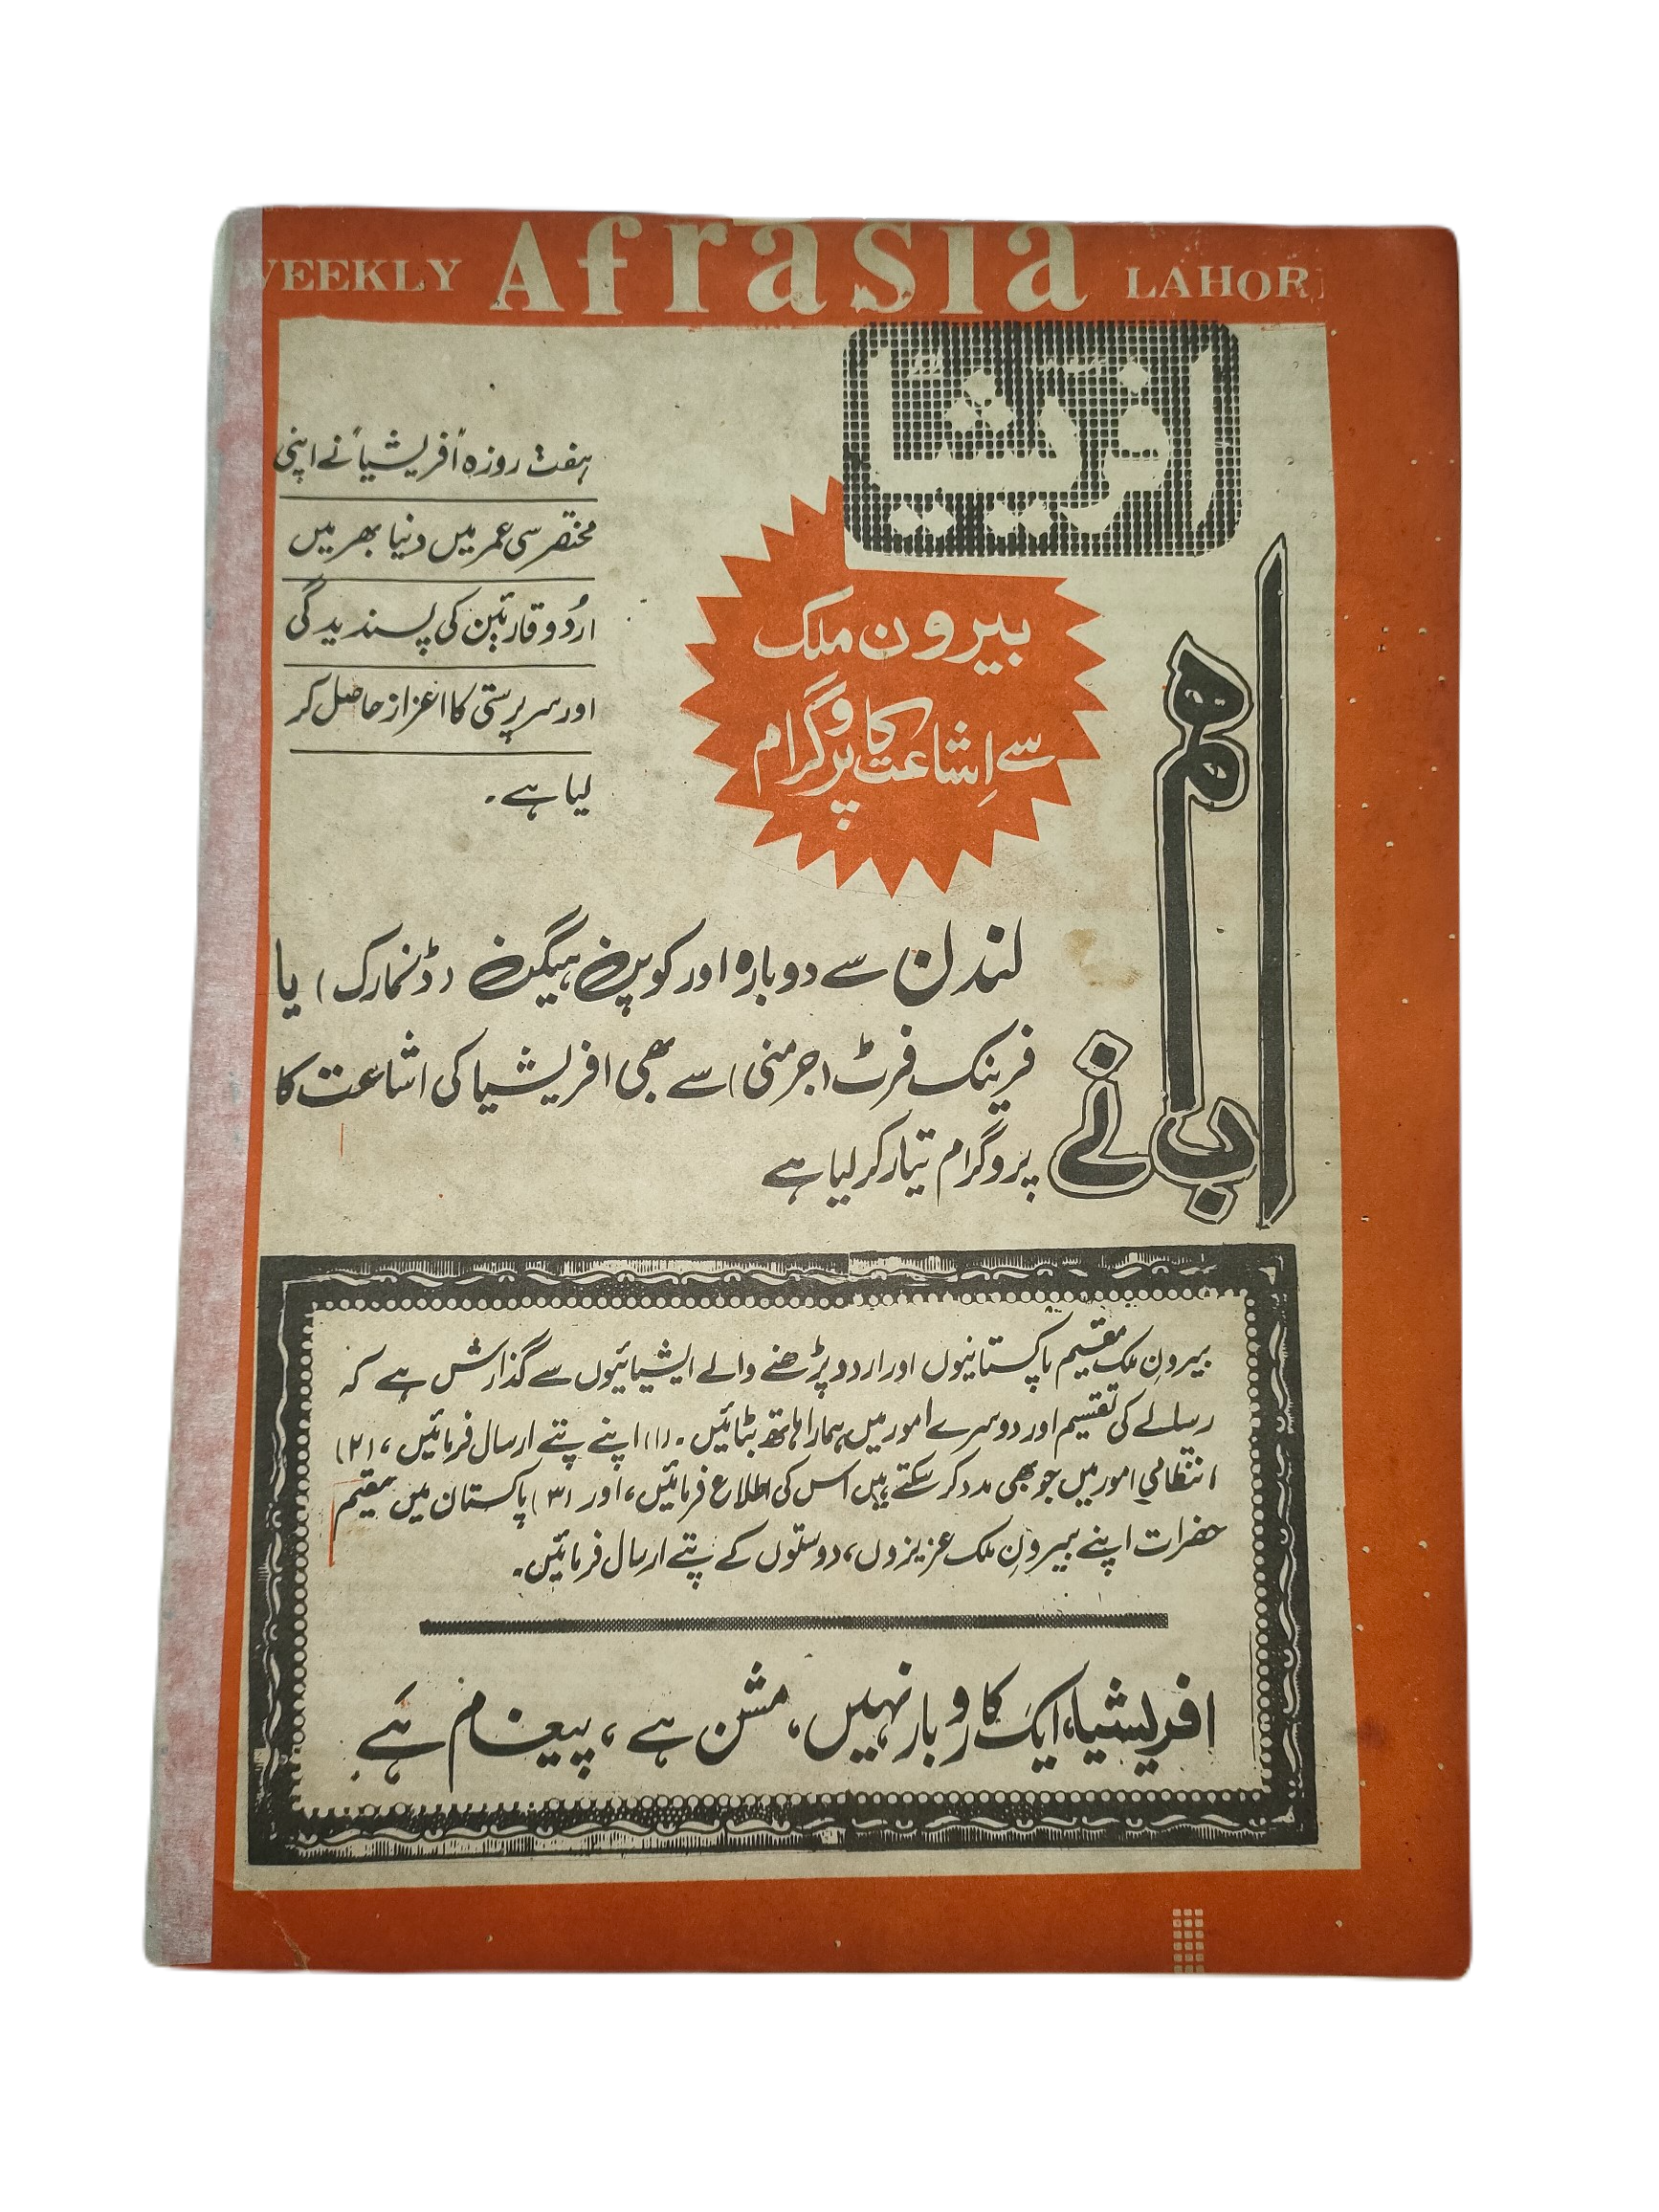 WEEKLY Afrasia LAHOR
افریشیا
ہفت روزہ "افریشیا" نے اپنی
مختصر سی عمر میں دنیا بھر میں
اردُو قارئین کی پسندیدگی
اور سرپرستی کا اعزاز حاصل کر
لیا ہے۔
بیرون ملک
سے اِشاعت کا پروگرام
اب ہم نے
لندن سے دوبارہ اور کوپن ہیگن (ڈنمارک) یا
فرینک فرٹ (جرمنی) سے بھی افریشیا کی اشاعت کا
پروگرام تیار کر لیا ہے
بیرونِ ملک مقیم پاکستانیوں اور اردو پڑھنے والے ایشیائیوں سے گذارش ہے کہ
رسالے کی تقسیم اور دوسرے امور میں ہمارا ہاتھ بٹائیں۔ (۱) اپنے پتے ارسال فرمائیں، (۲)
انتظامی امور میں جو بھی مدد کر سکتے ہیں اس کی اطلاع فرمائیں، اور (۳) پاکستان میں مقیم
حضرات اپنے بیرونِ ملک عزیزوں، دوستوں کے پتے ارسال فرمائیں۔
افریشیا، ایک کاروبار نہیں، مشن ہے، پیغام ہے